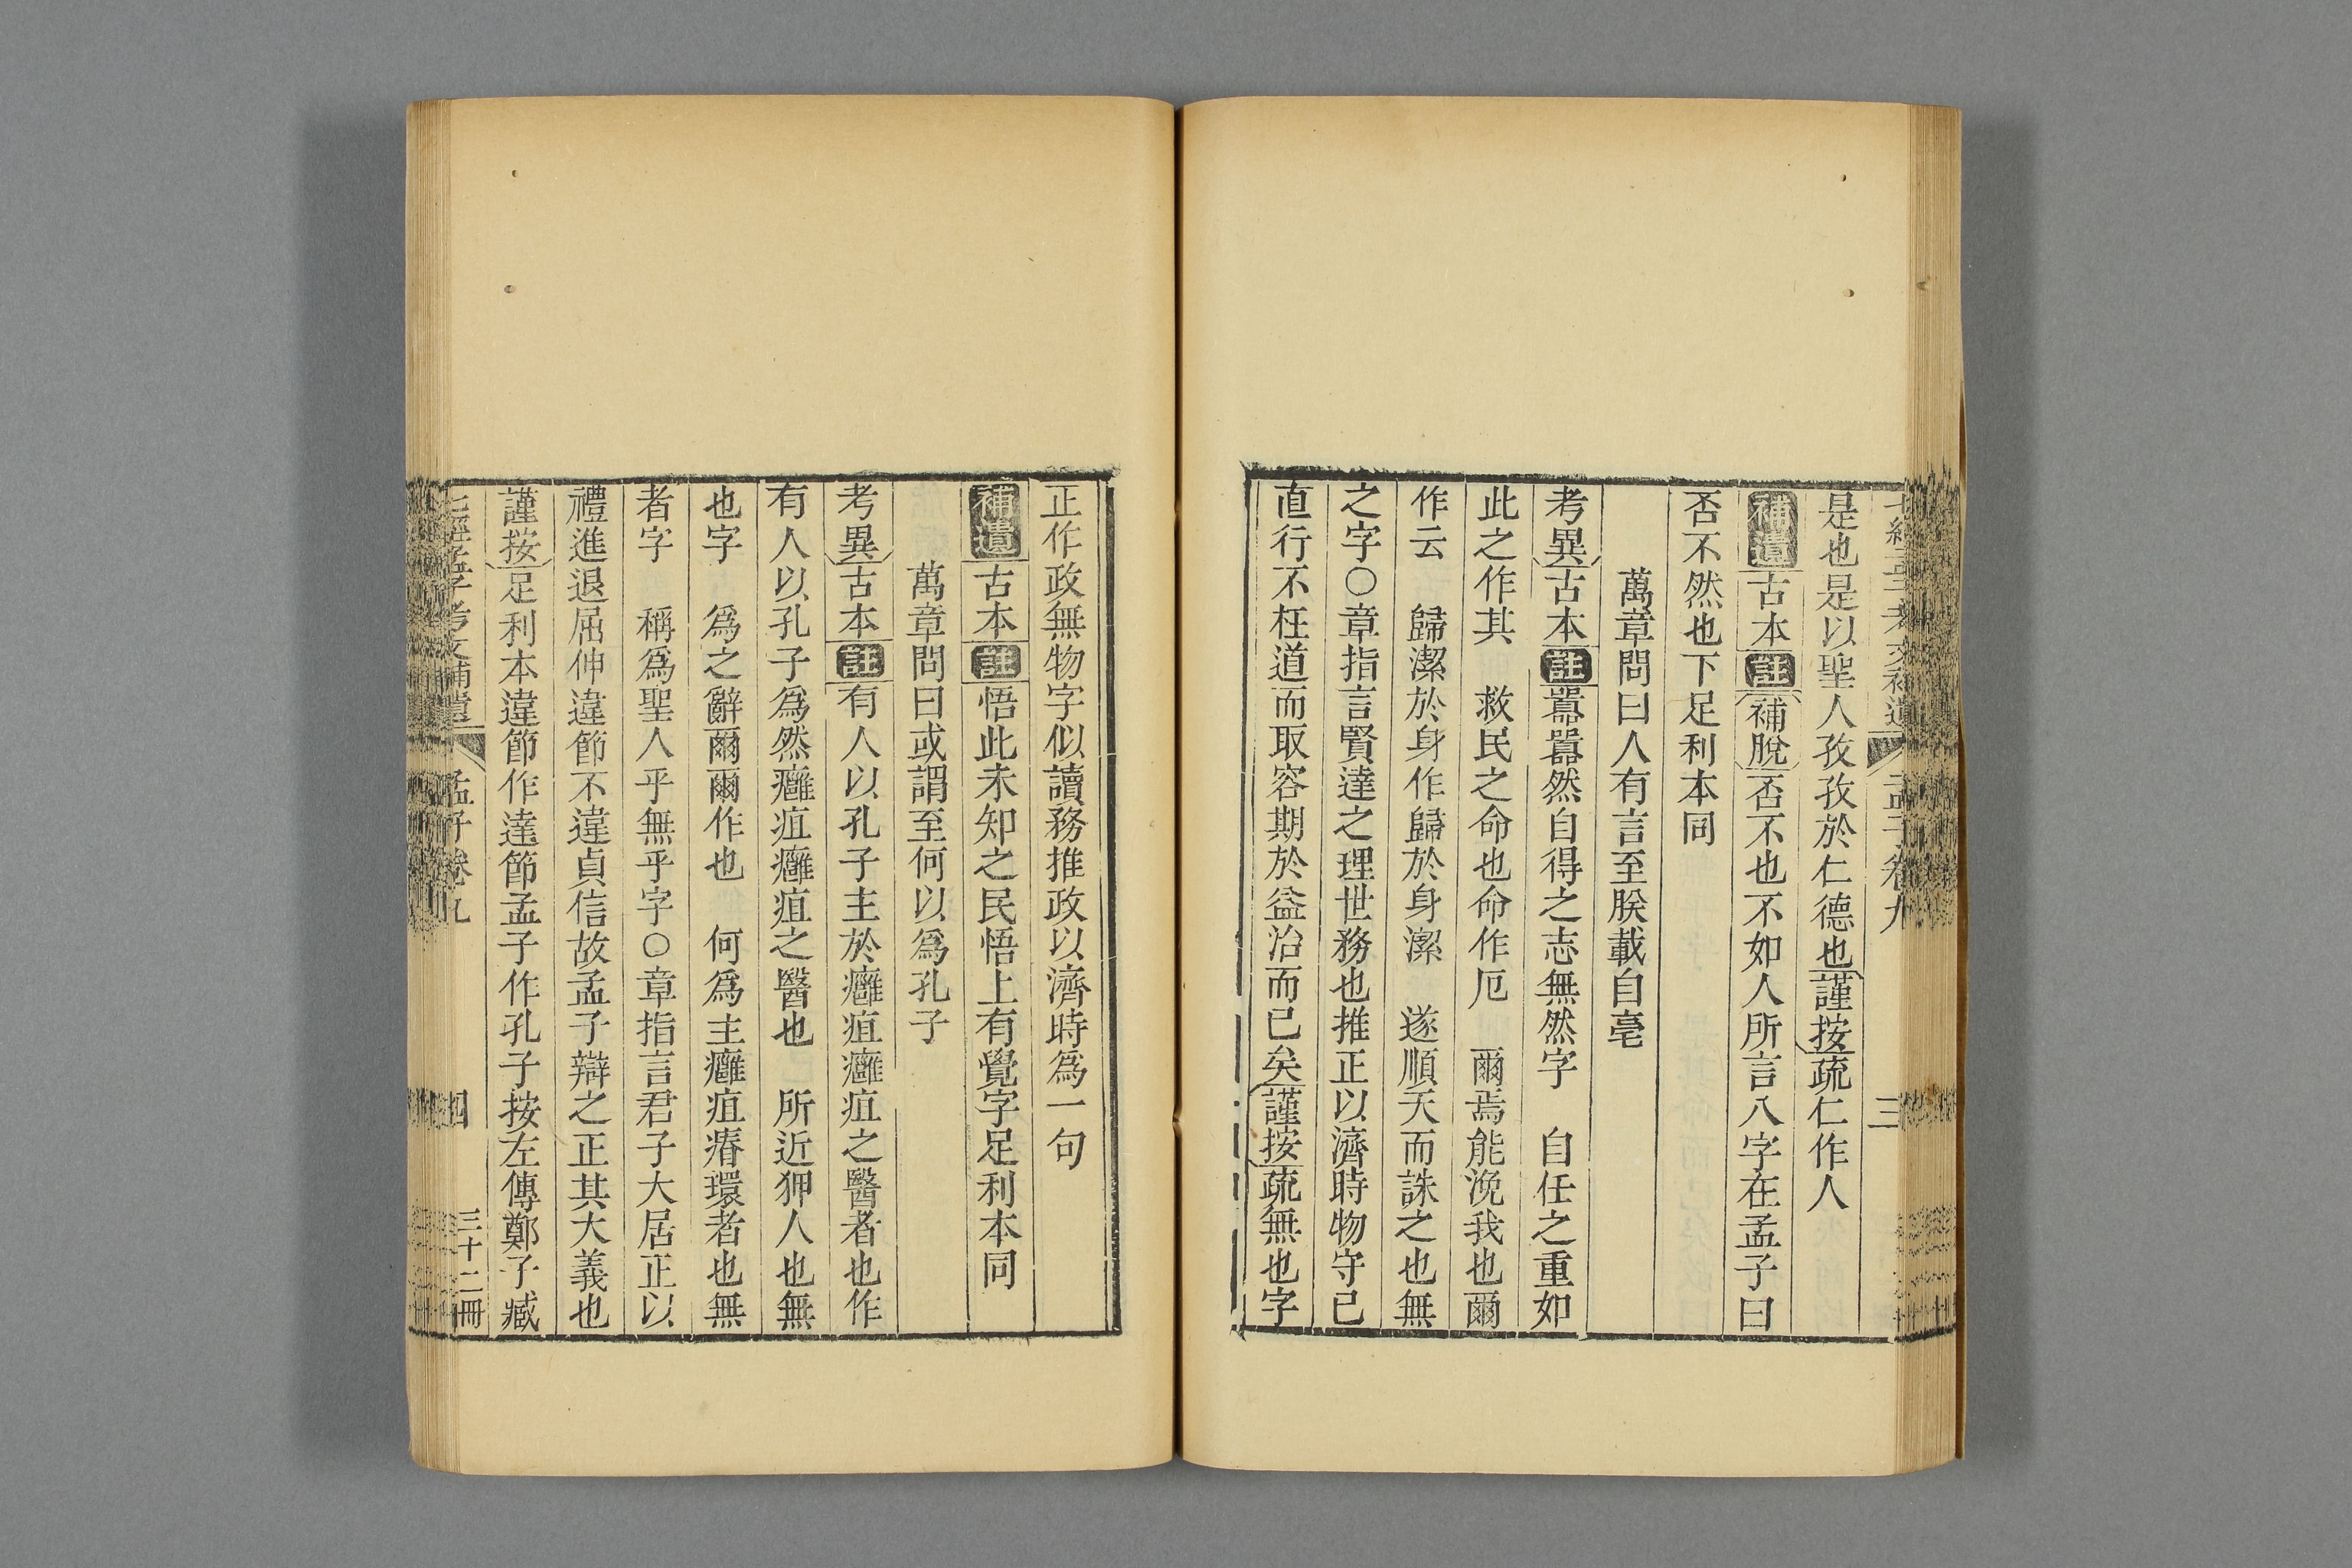 七經孟子考文補遺 孟子卷九 三
是也是以聖人孜孜於仁德也謹按疏仁作人
補遺古本註補脫否不也不如人所言八字在孟子曰
否不然也下足利本同
萬章問曰人有言至朕載自亳
考異古本註囂囂然自得之志無然字 自任之重如
此之作其 救民之命也命作厄 爾焉能浼我也爾
作云 歸潔於身作歸於身潔 遂順天而誅之也無
之字〇章指言賢達之理世務也推正以濟時物守己
直行不枉道而取容期於益治而已矣謹按疏無也字
正作政無物字似讀務推政以濟時爲一句
補遺古本註悟此未知之民悟上有覺字足利本同
萬章問曰或謂至何以爲孔子
考異古本註有人以孔子主於癰疽癰疽之醫者也作
有人以孔子爲然癰疽癰疽之醫也 所近狎人也無
也字 爲之辭爾爾作也 何爲主癰疽瘠環者也無
者字 稱爲聖人乎無乎字〇章指言君子大居正以
禮進退屈伸違節不違貞信故孟子辯之正其大義也
謹按足利本違節作達節孟子作孔子按左傳鄭子臧
七經孟子考文補遺 孟子卷九 四 三十二冊